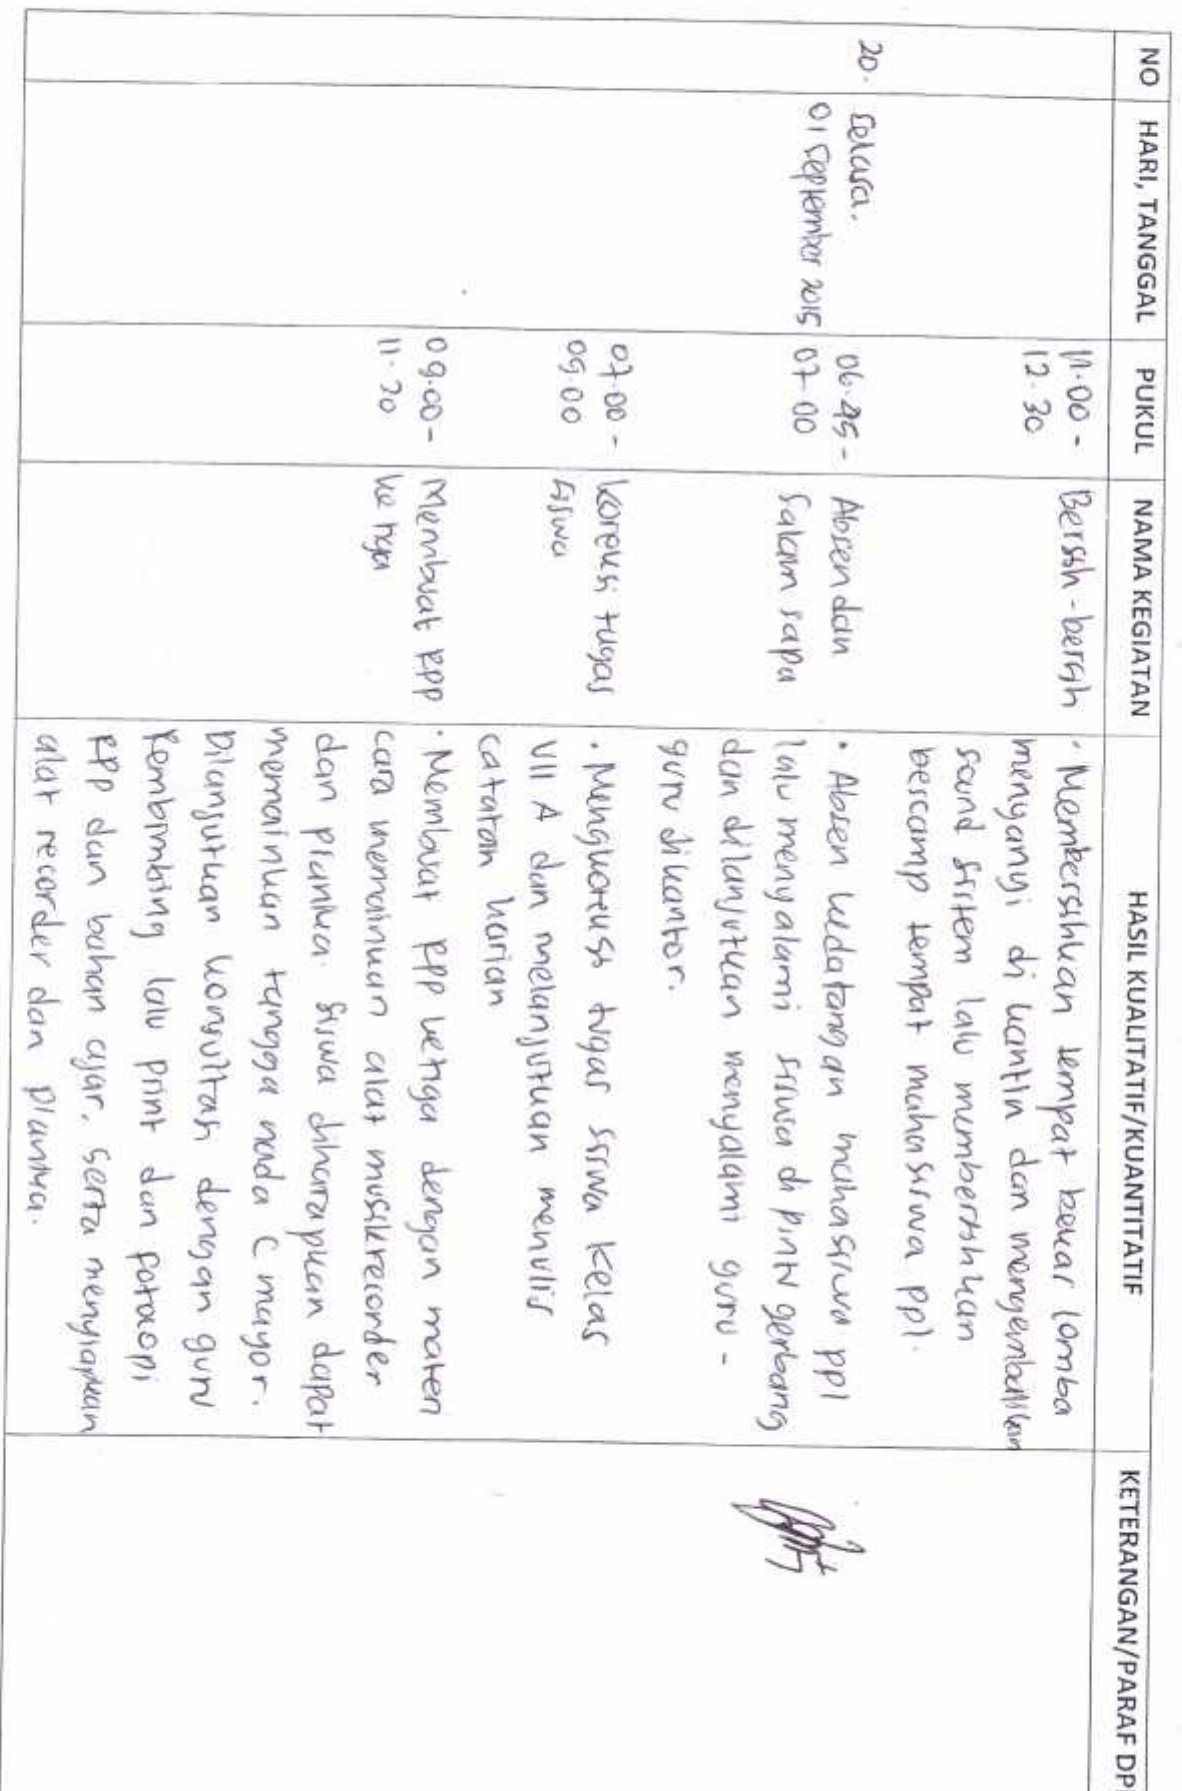 NO HARI, TANGGAL PUKUL NAMA KEGIATAN HASIL KUALITATIF/KUANTITATIF KETERANGAN/PARAF DP
11.00 - Bersih-bersih · Membersihkan tempat bekar lomba
12.30 menyanyi di kantin dan mengembalikan
sound sistem lalu membersihkan
bescamp tempat mahasiswa ppl.
20. Selasa. 06.45 - Absen dan · Absen kedatangan mahasiswa ppl
01 September 2015 07.00 Salam sapa lalu menyalami siswa di pintu gerbang
dan dilanjutkan menyalami guru -
guru dikantor.
07.00 - Koreksi tugas · Mengkoreksi tugas siswa Kelas
09.00 siswa VII A dan melanjutkan menulis
catatan harian
09.00 - Membuat RPP · Membuat RPP ketiga dengan materi
11.20 ke tiga cara memainkan alat musik recorder
dan pianika. Siswa diharapkan dapat
memainkan tangga nada C mayor.
Dilanjutkan konsultasi dengan guru
Pembimbing lalu print dan fotocopi
RPP dan bahan ajar, serta menyiapkan
alat recorder dan pianika.